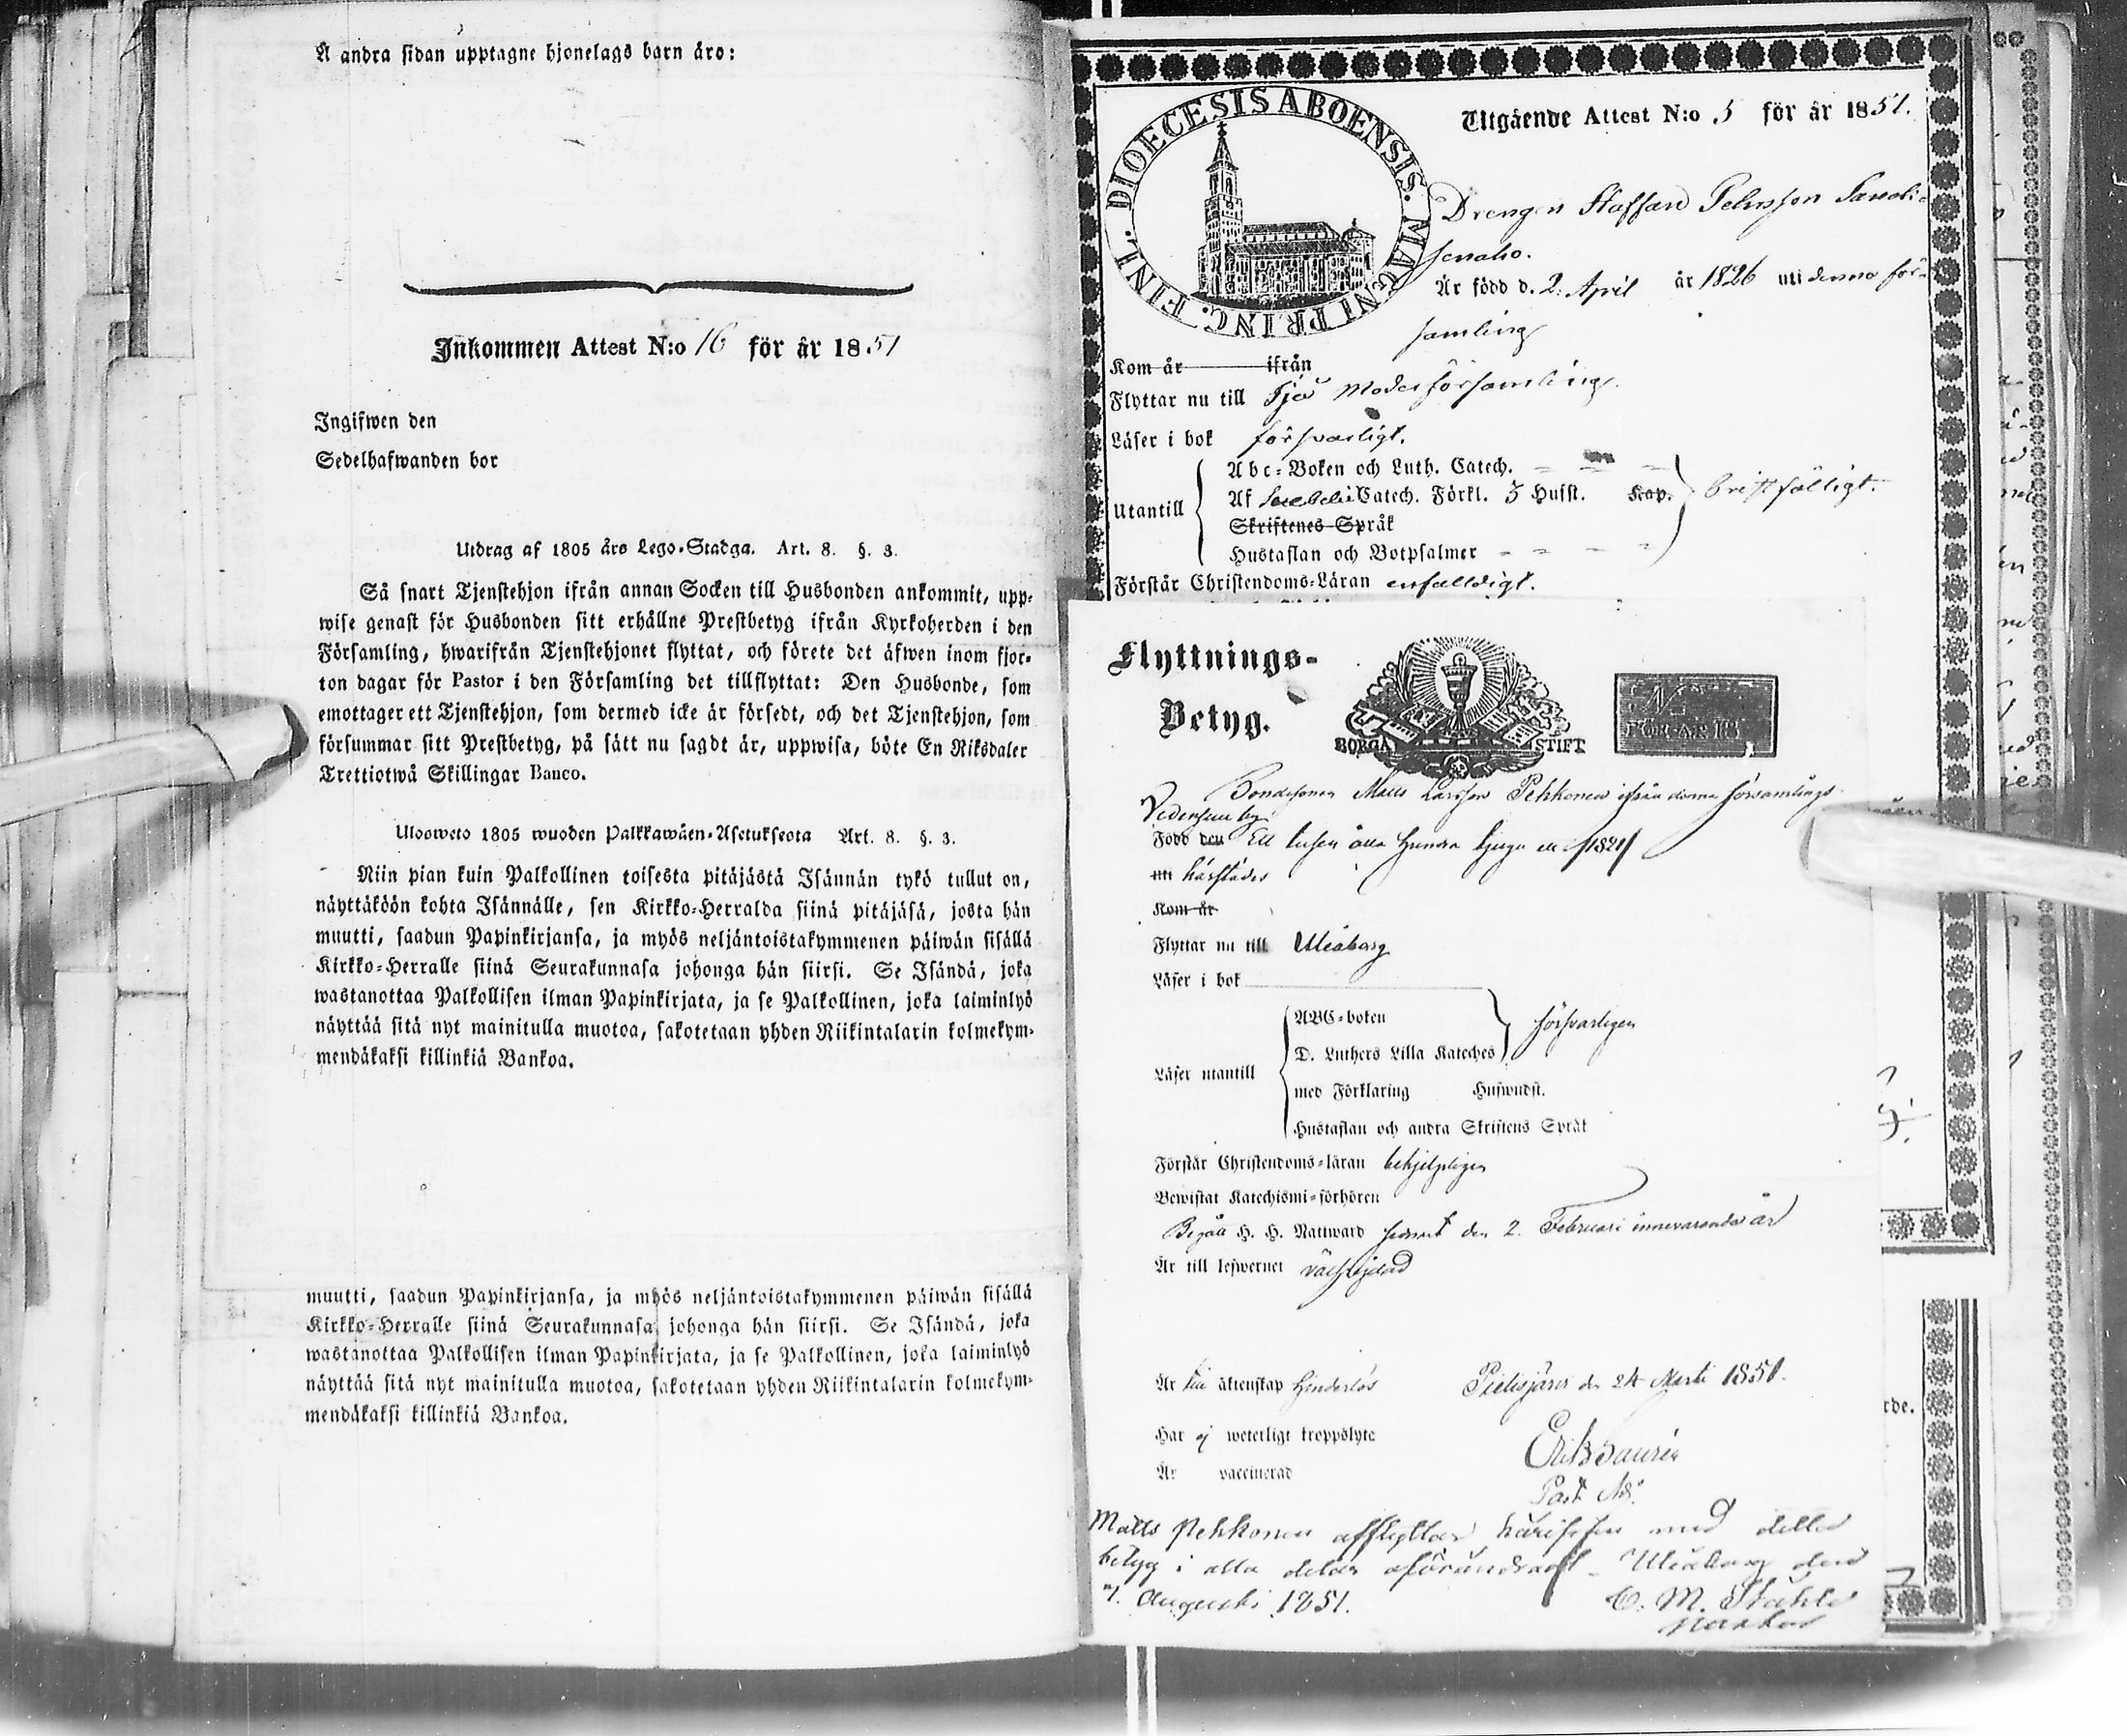 A andra sidan upptagne hjonelags barn äro:
Inkommen Attest N:o 16 för år 1851
Ingifwen den
Sedelhafwanden bor
Utdrag af 1805 års Lego-Stadga. Art. 8. §. 3.
Så snart Tjenstehjon ifrån annan Socken till Husbonden ankommit, upp-
wise genast för Husbonden sitt erhållne Prestbetyg ifrån Kyrkoherden i den
Församling, hwarifrån Tjenstehjonet flyttat, och förete det äfwen inom fjor-
ton dagar för Pastor i den Församling det tillflyttat: Den Husbonde, som
emottager ett Tjenstehjon, som dermed icke är försedt, och det Tjenstehjon, som
försummar sitt Prestbetyg, på sätt nu sagdt är, uppwisa, böte En Riksdaler
Trettiotwå Skillingar Banco.
Ulosweto 1805 wuoden Palkkawäen-Asetuksesta Art. 8. §. 3.
Niin pian kuin Palkollinen toisesta pitäjästä Isännän tykö tullut on,
näyttäköön kohta Isännälle, sen Kirkko-Herralda siinä pitäjäsä, josta hän
muutti, saadun Papinkirjansa, ja myös neljäntoistakymmenen päiwän sisällä
Kirkko-Herralle siinä Seurakunnasa johonga hän siirsi. Se Isändä, joka
wastanottaa Palkollisen ilman Papinkirjata, ja se Palkollinen, joka laiminlyö
näyttää sitä nyt mainitulla muotoa, sakotetaan yhden Riikintalarin kolmekym-
mendäkaksi killinkiä Bankoa.
muutti, saadun Papinkirjansa, ja myös neljäntoistakymmenen päiwän sisällä
Kirkko-Herralle siinä Seurakunnasa johonga hän siirsi. Se Isändä, joka
wastanottaa Palkollisen ilman Papinkirjata, ja se Palkollinen, joka laiminlyö
näyttää sitä nyt mainitulla muotoa, sakotetaan yhden Riikintalarin kolmekym-
mendäkaksi killinkiä Bankoa.
DIOECESIS ABOENSIS. MAGNI PRINC. FINL.
Utgående Attest N:o 5 för år 1851.
Drengen Staffan Pehrsson
Är född d. 2. April år 1826 uti denna för-
samling
Kom år ifrån
Flyttar nu till Ijo Moderförsamling.
Läser i bok försvarligt.
Utantill
Abc-Boken och Luth. Catech.
Af Svebelii Catech. Förkl. 5 Hufst. Kap. bristfälligt.
Skriftenes Språk
Hustaflan och Botpsalmer
Förstår Christendoms-Läran enfaldigt.
Flyttnings-
Betyg.
BORGÅ STIFT
N
FÖR ÅR 18
Bondesonen Matts Larsson Pehkonen ifrån denna församlings
Född den Ett tusen åtta hundra tjugu ett /1821/
uti härstädes
Kom år
Flyttar nu till Uleåborg
Läser i bok
ABC-boken
D. Luthers Lilla Kateches försvarligen
Läser utantill
med Förklaring Hufwudst.
Hustaflan och andra Skriftens Språk
Förstår Christendoms-läran behjelpligen
Bewistat Katechismi-förhören
Begått H. H. Nattward senast den 2. Februari innevarande år
Är till lefwernet välfrejdad
Är till äktenskap hinderlös Pielisjärvi d. 24 Martii 1851.
Har ej weterligt kroppslyte
Är vaccinerad
Past. Adj.
Matts Pehkonen afflyttar härifrån med detta
betyg i alla delar oförändradt. Uleåborg den
7. Augusti 1851. C. M. Ståhle
rde.